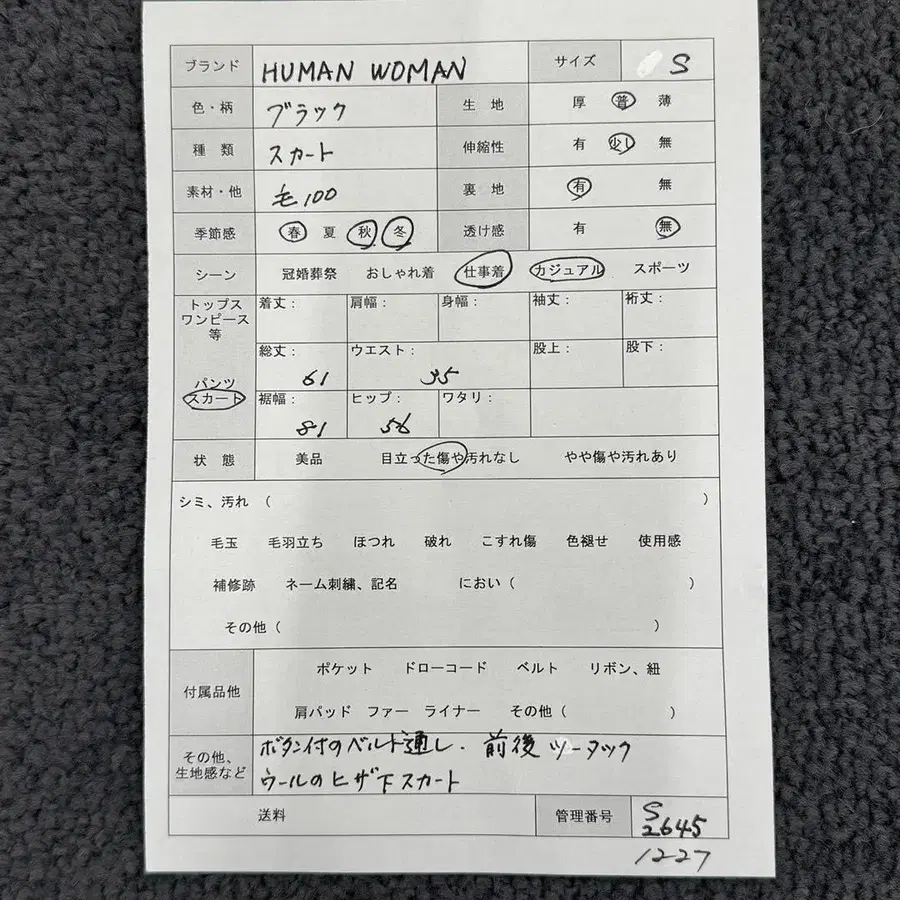 ブランド HUMAN WOMAN サイズ S
色・柄 ブラック 生 地 厚 普 薄
種 類 スカート 伸縮性 有 少し 無
素材・他 毛100 裏 地 有 無
季節感 春 夏 秋 冬 透け感 有 無
シーン 冠婚葬祭 おしゃれ着 仕事着 カジュアル スポーツ
トップス
ワンピース
等
着丈： 肩幅： 身幅： 袖丈： 裄丈：
パンツ
スカート
総丈： 61 ウエスト： 35 股上： 股下：
裾幅： 81 ヒップ： 56 ワタリ：
状 態 美品 目立った傷や汚れなし やや傷や汚れあり
シミ、汚れ （ ）
毛玉 毛羽立ち ほつれ 破れ こすれ傷 色褪せ 使用感
補修跡 ネーム刺繍、記名 におい（ ）
その他（ ）
付属品他 ポケット ドローコード ベルト リボン、紐
肩パッド ファー ライナー その他（ ）
その他、
生地感など
ボタン付のベルト通し．前後ツータック
ウールのヒザ下スカート
送料 管理番号 S
2645
12-27